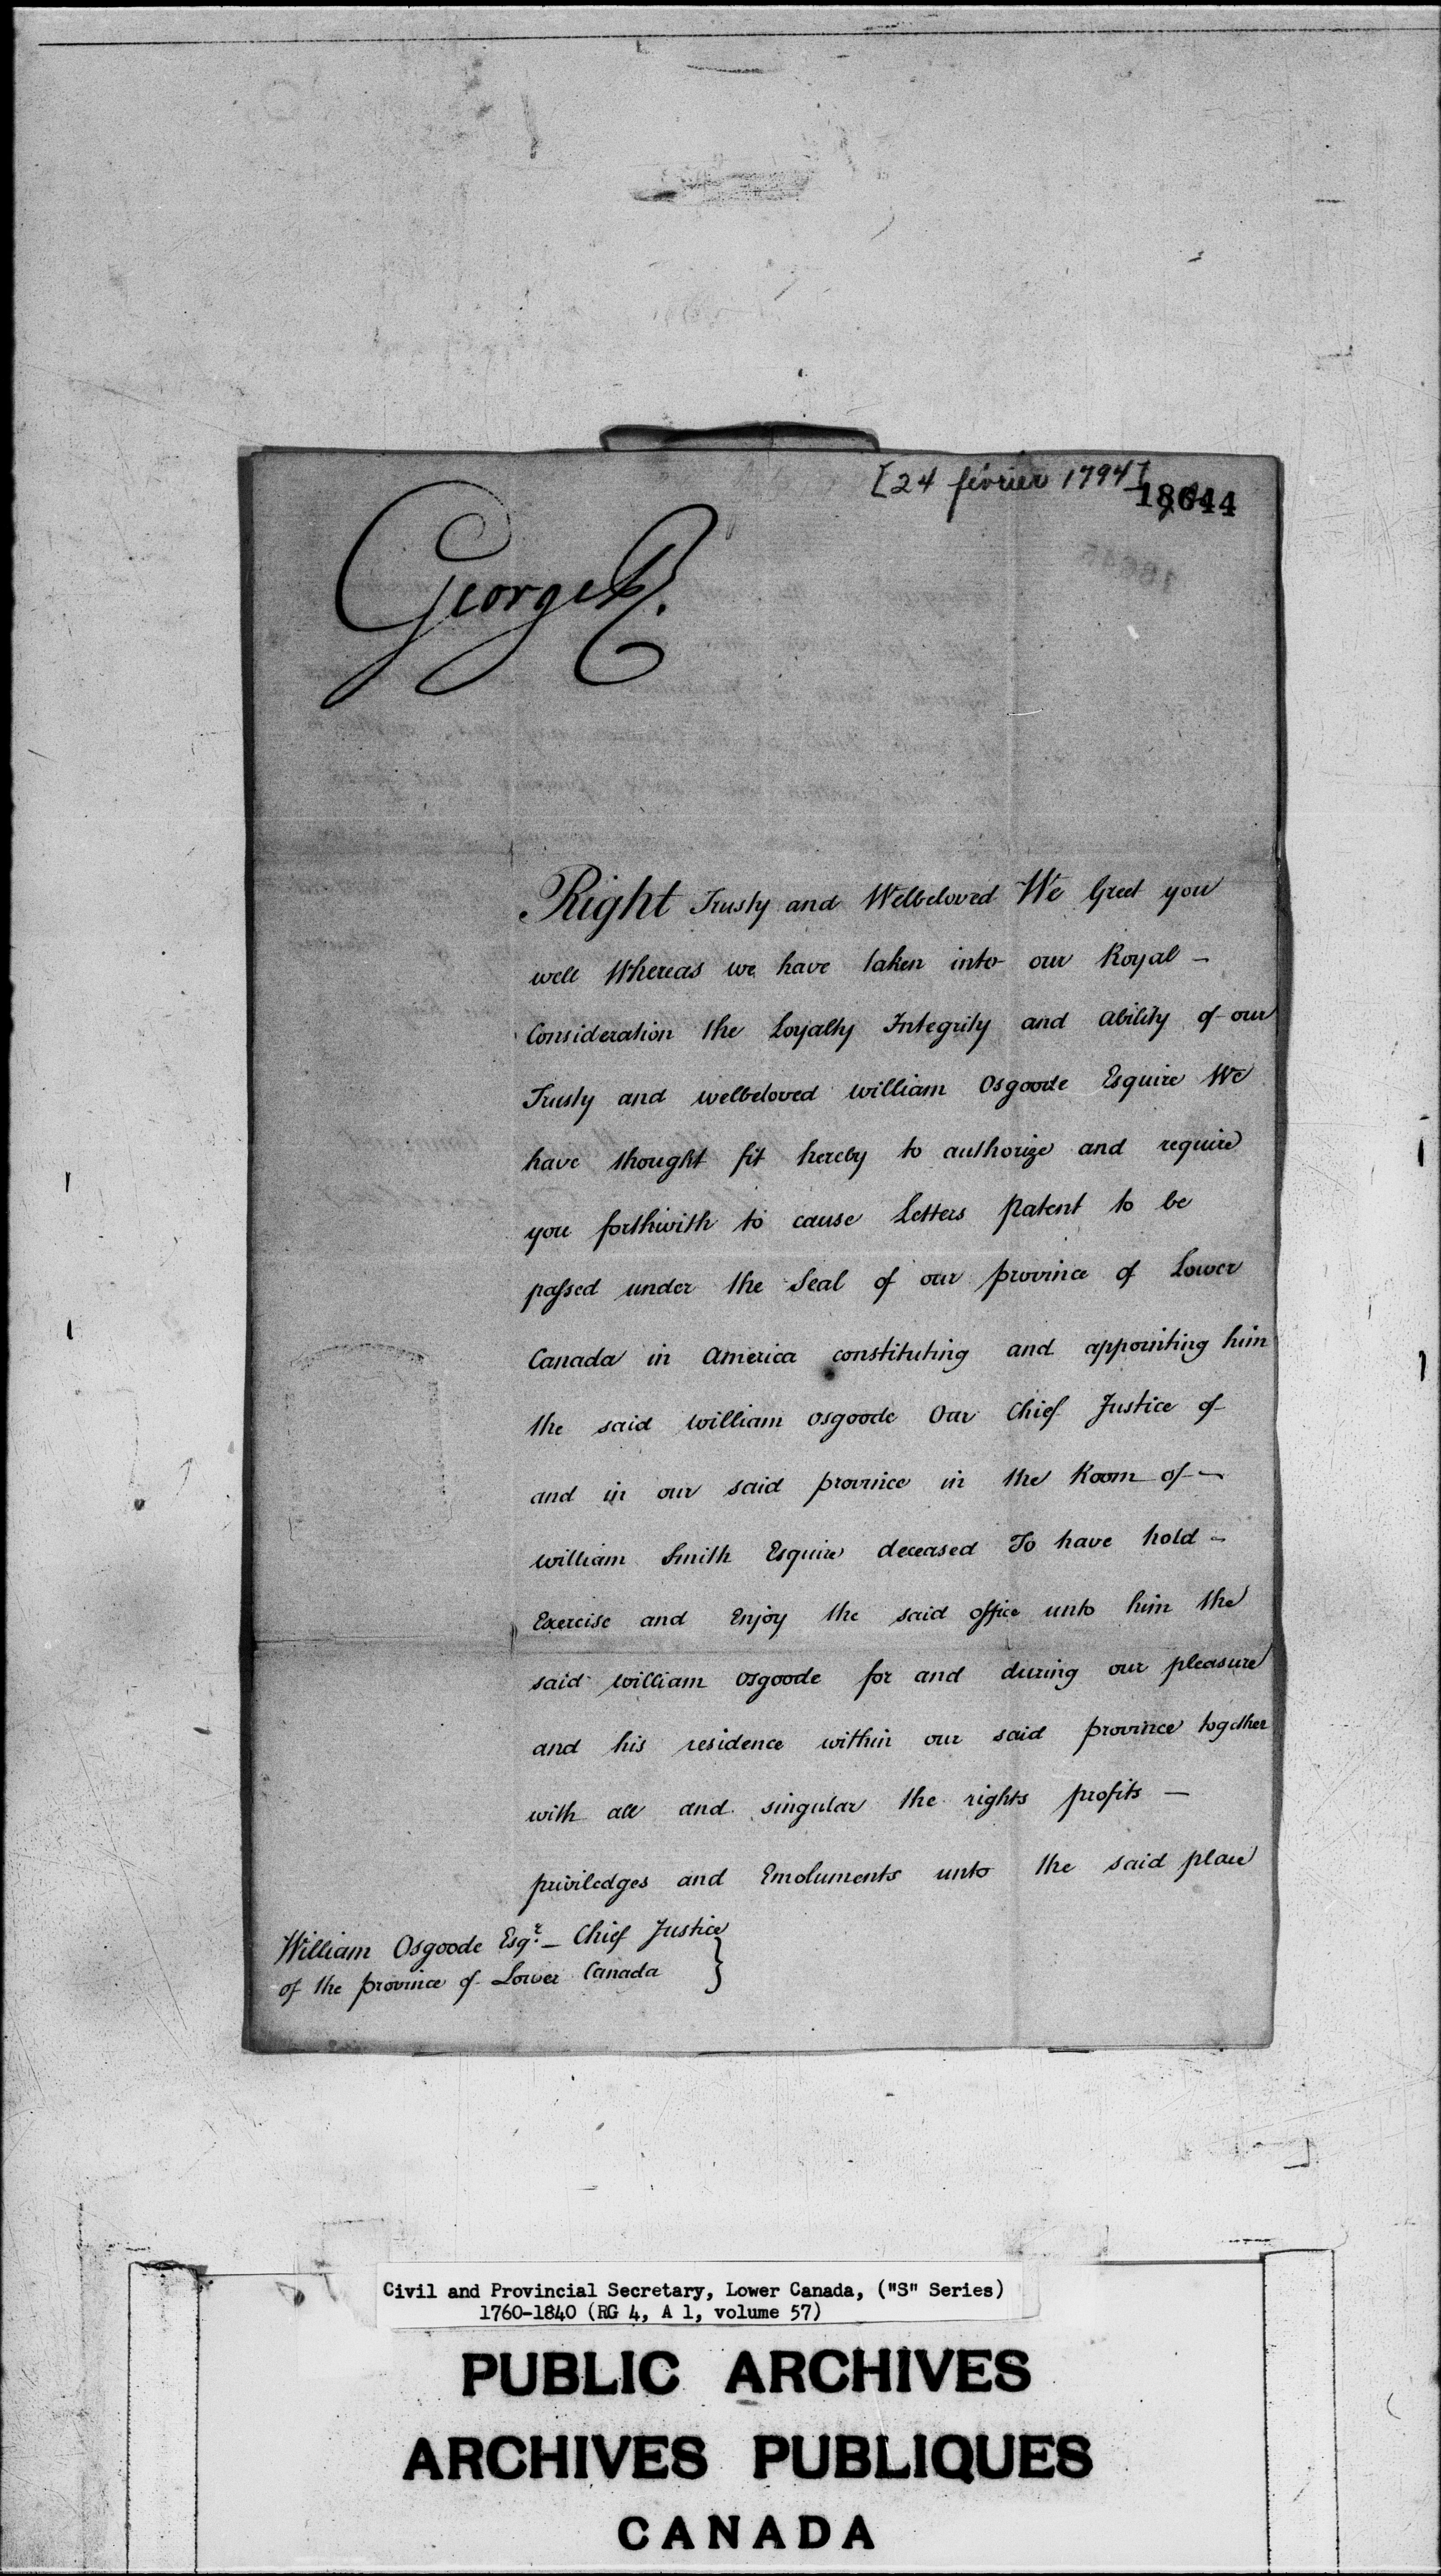 [24 février 1794]
18644
George R.
Right Trusty and Welbeloved We Greet you
well Whereas we have taken into our Royal –
Consideration the Loyalty Integrity and ability of our
Trusty and welbeloved William Osgoode Esquire We
have thought fit hereby to authorize and require
you forthwith to cause Letters patent to be
passed under the Seal of our province of Lower
Canada in america constituting and appointing him
the said William Osgoode Our Chief Justice of
and in our said province in the Room of –
William Smith Esquire deceased To have hold –
Exercise and Enjoy the said office unto him the
said William Osgoode for and during our pleasure
and his residence within our said province together
with all and singular the rights profits –
priviledges and Emoluments unto the said place
William Osgoode Esqr. – Chief Justice }
of the province of Lower Canada
Civil and Provincial Secretary, Lower Canada, ("S" Series)
1760-1840 (RG 4, A 1, volume 57)
PUBLIC ARCHIVES
ARCHIVES PUBLIQUES
CANADA